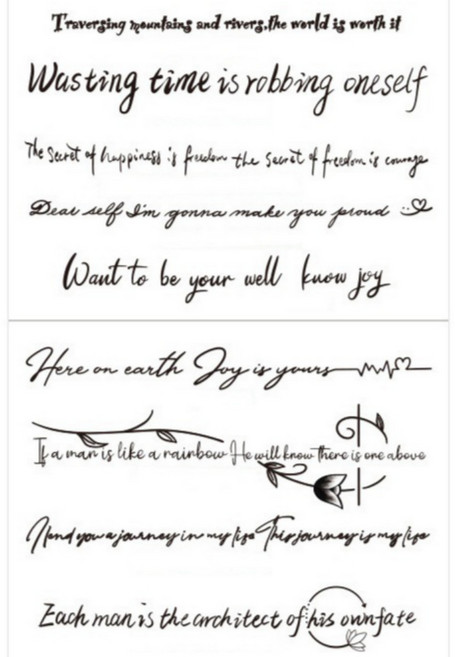 Traversing mountains and rivers,the world is worth it
Wasting time is robbing oneself
The Secret of happiness is freedom the secret of freedom is courage
Dear self I'm gonna make you proud
Want to be your well know joy
Here on earth Joy is yours
If a man is like a rainbow He will know there is one above
I lend you a journey in my life This journey is my life
Each man is the architect of his own fate